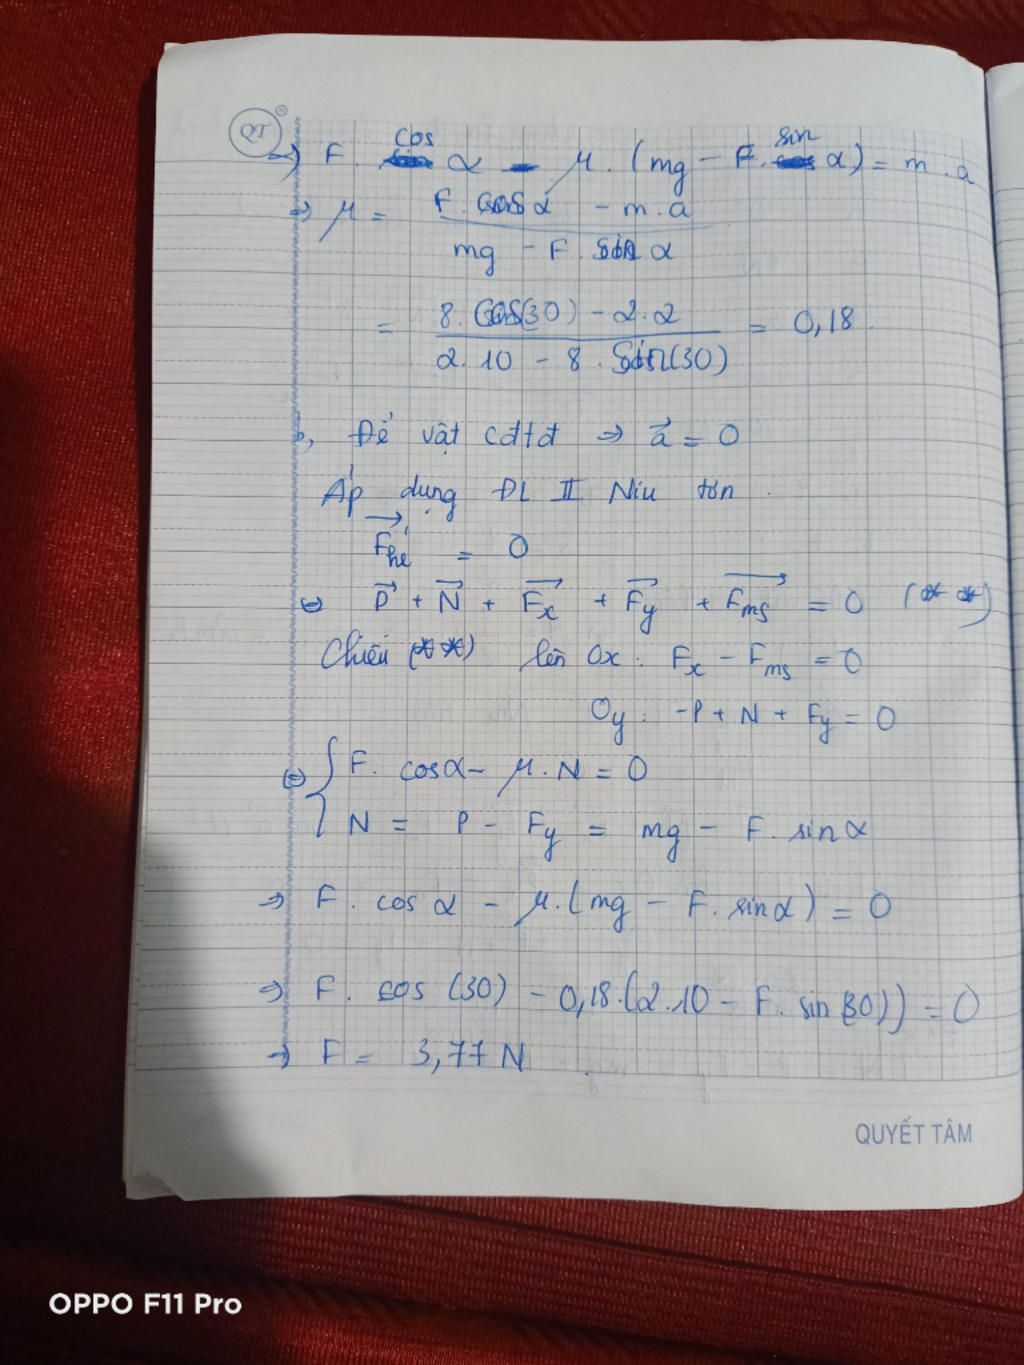 QT ®
→) F. cos α - μ. (mg - F. sin α) = m.a
=> μ = F. cosα - m.a
mg - F. sin α
= 8. cos(30) - 2.2 = 0,18
2. 10 - 8. sin(30)
b, Để vật cđtđ => a⃗ = 0
Áp dụng ĐL II Niu tơn
F⃗hl = 0
P⃗ + N⃗ + F⃗x + F⃗y + F⃗ms = 0 (**)
Chiếu (**) lên Ox: Fx - Fms = 0
Oy: -P + N + Fy = 0
F. cosα - μ.N = 0
N = P - Fy = mg - F. sinα
=> F. cos α - μ.(mg - F. sinα) = 0
=> F. cos (30) - 0,18.(2.10 - F. sin(30)) = 0
→ F = 3,77 N
QUYẾT TÂM
OPPO F11 Pro